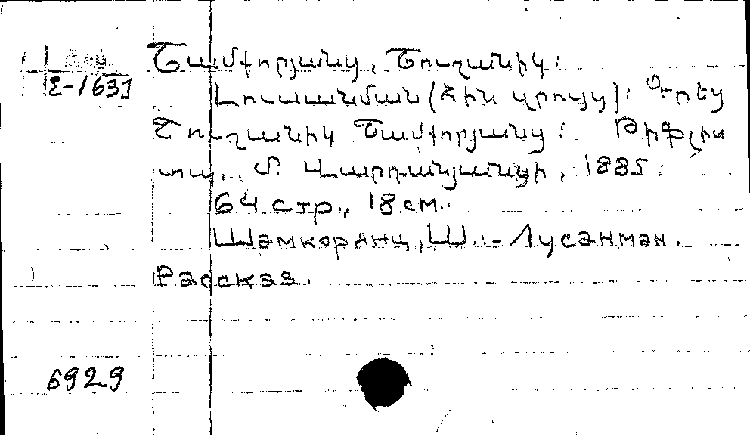 Շամքորյանց, Շուշանիկ:
Լուսանման (Հին զրույց): Գրեց
Շուշանիկ Շամքորյանց: Թիֆլիս
տպ. Մ. Վարդանյանցի, 1885.
64 стр., 18 см.
Шамкорянц, Ш. - Лусанман.
Рассказ.
6929